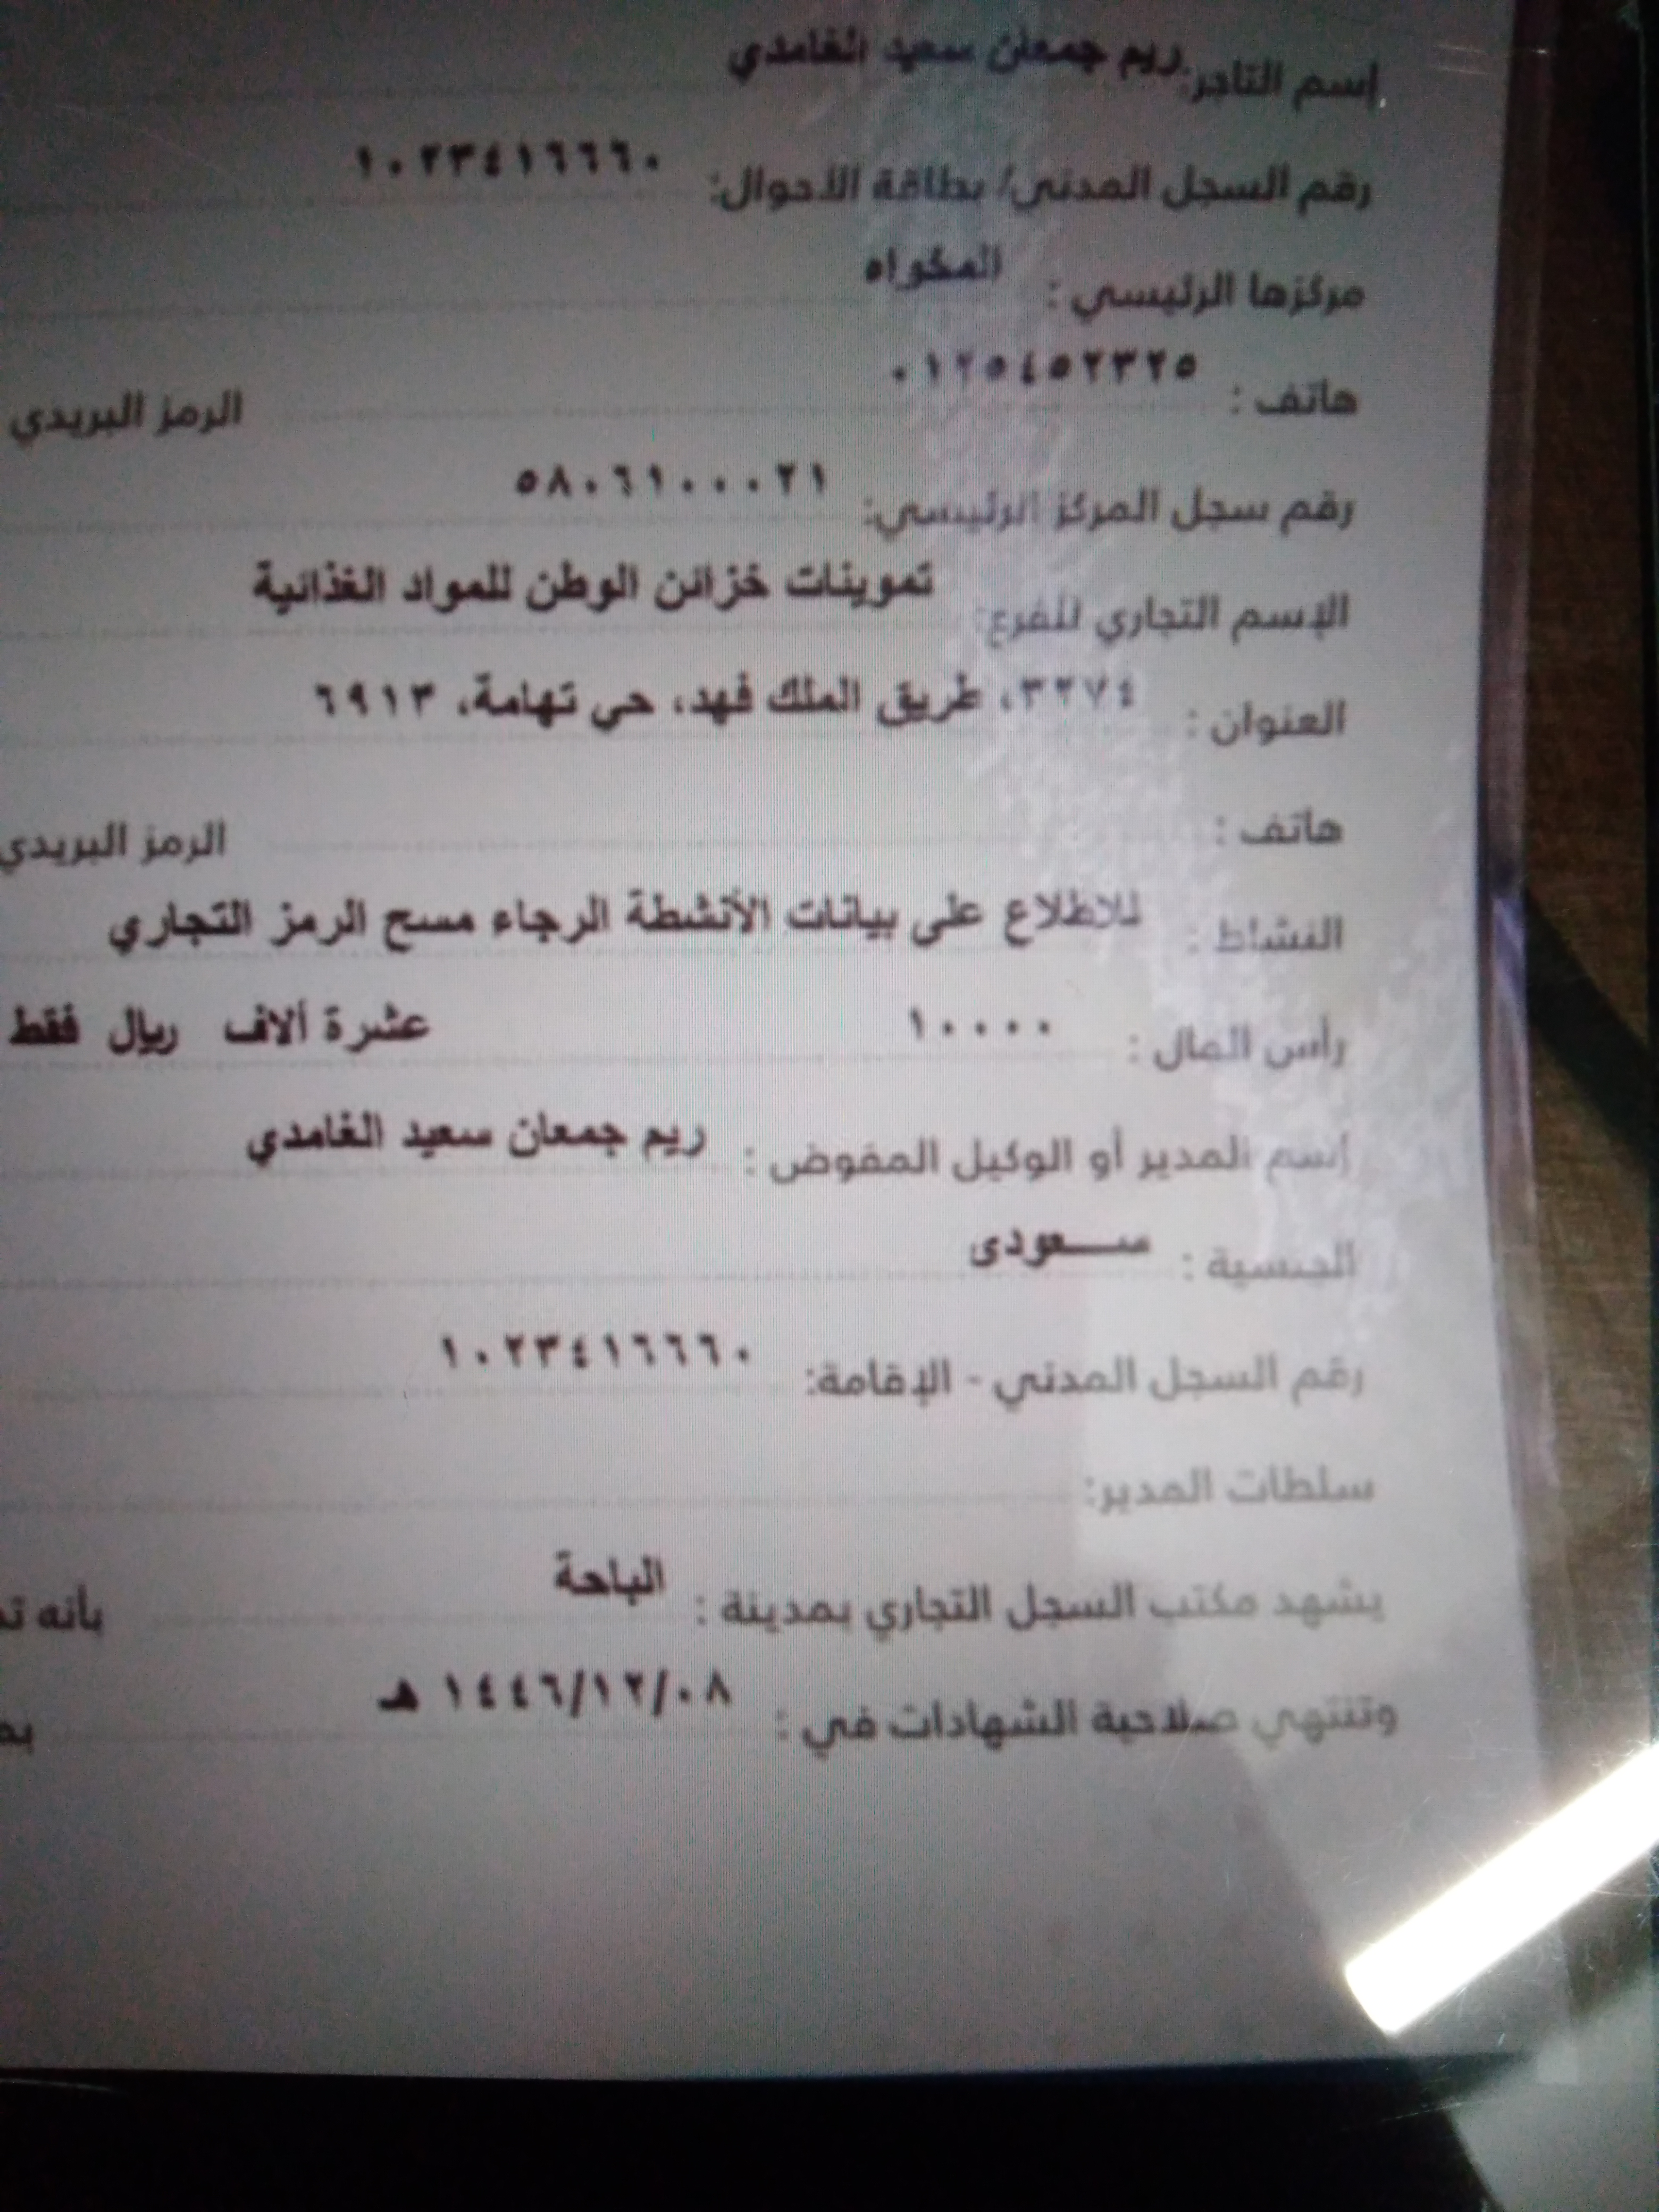 إسم التاجر: ريم جمعان سعيد الغامدي
رقم السجل المدني/ بطاقة الأحوال: ١٠٢٣٤١٦٦٦٠
مركزها الرئيسي : المخواه
هاتف : ٠١٢٥٤٥٢٣٢٥ الرمز البريدي
رقم سجل المركز الرئيسي: ٥٨٠٦١٠٠٠٢١
الإسم التجاري للفرع: تموينات خزائن الوطن للمواد الغذائية
العنوان : ٣٢٧٤، طريق الملك فهد، حي تهامة، ٦٩١٣
هاتف : الرمز البريدي
النشاط : للاطلاع على بيانات الأنشطة الرجاء مسح الرمز التجاري
رأس المال : ١٠٠٠٠ عشرة ألاف ريال فقط
إسم المدير أو الوكيل المفوض : ريم جمعان سعيد الغامدي
الجنسية : سـعودى
رقم السجل المدني - الإقامة: ١٠٢٣٤١٦٦٦٠
سلطات المدير:
يشهد مكتب السجل التجاري بمدينة : الباحة بأنه
وتنتهي صلاحية الشهادات في : ١٤٤٦/١٢/٠٨ هـ